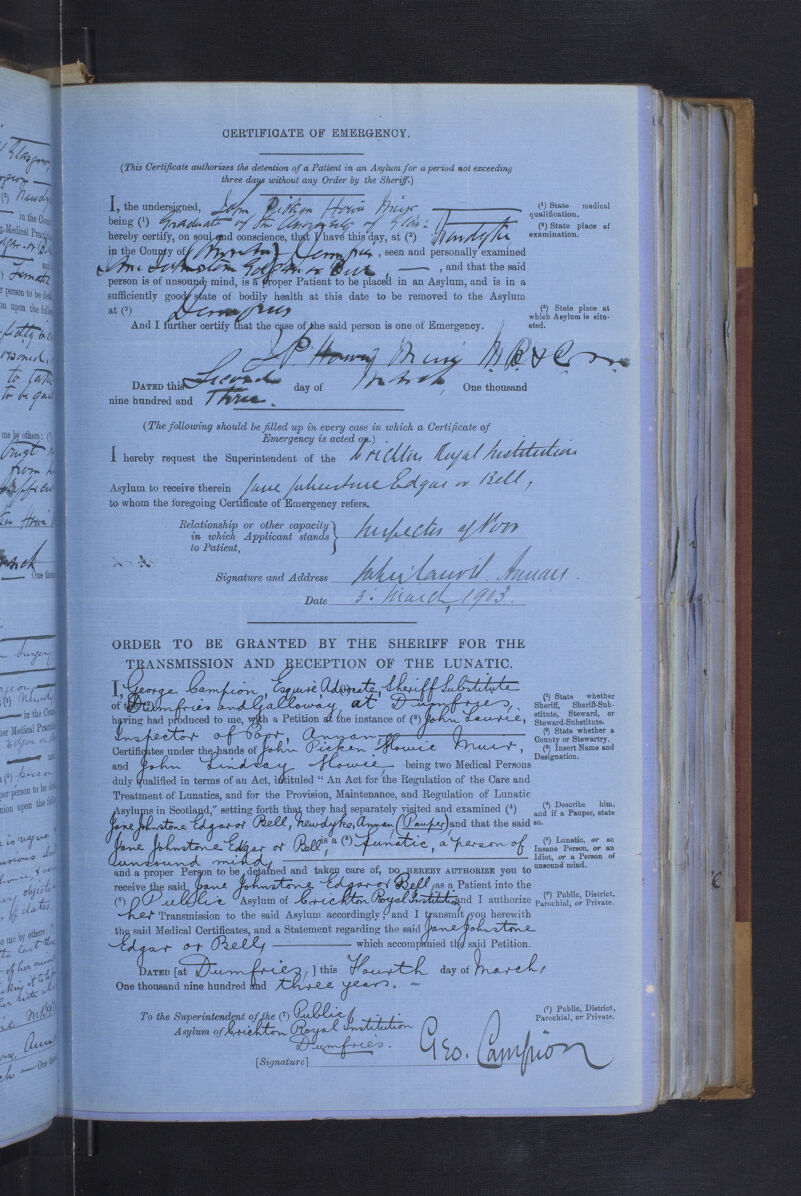 CERTIFICATE OF EMERGENCY.
(This Certificate authorizes the detention of a Patient in an Asylum for a period not exceeding
three days without any Order by the Sheriff.)
I, the undersigned, John Picken Howie Muir
being (¹) Graduate of the University of Glas:
hereby certify, on soul and conscience, that I have this day, at (²) Newdyke
in the County of Dumfries, seen and personally examined
Jane Johnstone Edgar or Bell, — , and that the said
person is of unsound mind, is a proper Patient to be placed in an Asylum, and is in a
sufficiently good state of bodily health at this date to be removed to the Asylum
at (³) Dumfries
And I further certify that the case of the said person is one of Emergency.
J P. Howie Muir M.B & C.M.
DATED this Second day of March, One thousand
nine hundred and Three.
(¹) State medical
qualification.
(²) State place of
examination.
(³) State place at
which Asylum is situ-
ated.
(The following should be filled up in every case in which a Certificate of
Emergency is acted on.)
I hereby request the Superintendent of the Crichton Royal Institution
Asylum to receive therein Jane Johnstone Edgar or Bell,
to whom the foregoing Certificate of Emergency refers.
Relationship or other capacity
in which Applicant stands
to Patient,
Inspector of Poor
Signature and Address John Laurie. Annan.
Date 3. March, 1903.
ORDER TO BE GRANTED BY THE SHERIFF FOR THE
TRANSMISSION AND RECEPTION OF THE LUNATIC.
I, George Campion, Esquire Advocate, Sheriff Substitute
of Dumfries and Galloway, at Dumfries,
having had produced to me, with a Petition at the instance of (³) John Laurie,
Inspector of Poor, Annan
Certificates under the hands of John Picken Howie Muir,
and John Lindsay Howie being two Medical Persons
duly qualified in terms of an Act, intituled “ An Act for the Regulation of the Care and
Treatment of Lunatics, and for the Provision, Maintenance, and Regulation of Lunatic
Asylums in Scotland,” setting forth that they had separately visited and examined (⁴)
Jane Johnstone Edgar or Bell, Newdyke, Annan (Pauper) and that the said
Jane Johnstone Edgar or Bell, is a (⁵) Lunatic, a person of
unsound mind,
and a proper Person to be detained and taken care of, DO HEREBY AUTHORIZE you to
receive the said Jane Johnstone Edgar or Bell as a Patient into the
(⁶) Public Asylum of Crichton Royal Institution and I authorize
her Transmission to the said Asylum accordingly; and I transmit you herewith
the said Medical Certificates, and a Statement regarding the said Jane Johnstone
Edgar or Bell, which accompanied the said Petition.
DATED [at Dumfries, ] this Fourth day of March,
One thousand nine hundred and three years. –
To the Superintendent of the (⁷) Public
Asylum of Crichton Royal Institution
Dumfries.
[Signature] Geo. Campion
(¹) State whether
Sheriff, Sheriff-Sub-
stitute, Steward, or
Steward-Substitute.
(²) State whether a
County or Stewartry.
(³) Insert Name and
Designation.
(⁴) Describe him,
and if a Pauper, state
so.
(⁵) Lunatic, or an
Insane Person, or an
Idiot, or a Person of
unsound mind.
(⁶) Public, District,
Parochial, or Private.
(⁷) Public, District,
Parochial, or Private.